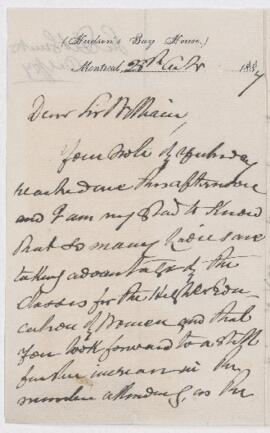 (Hudson's Bay House.)
Montreal, 25th Octr 1887
Dear Sir William,
Your note of yesterday
reached me this afternoon
and I am very glad to know
that so many ladies are
taking advantage of the
classes for the Higher Edu-
cation of Women and that
you look forward to a still
further increase in the
number attending, as the